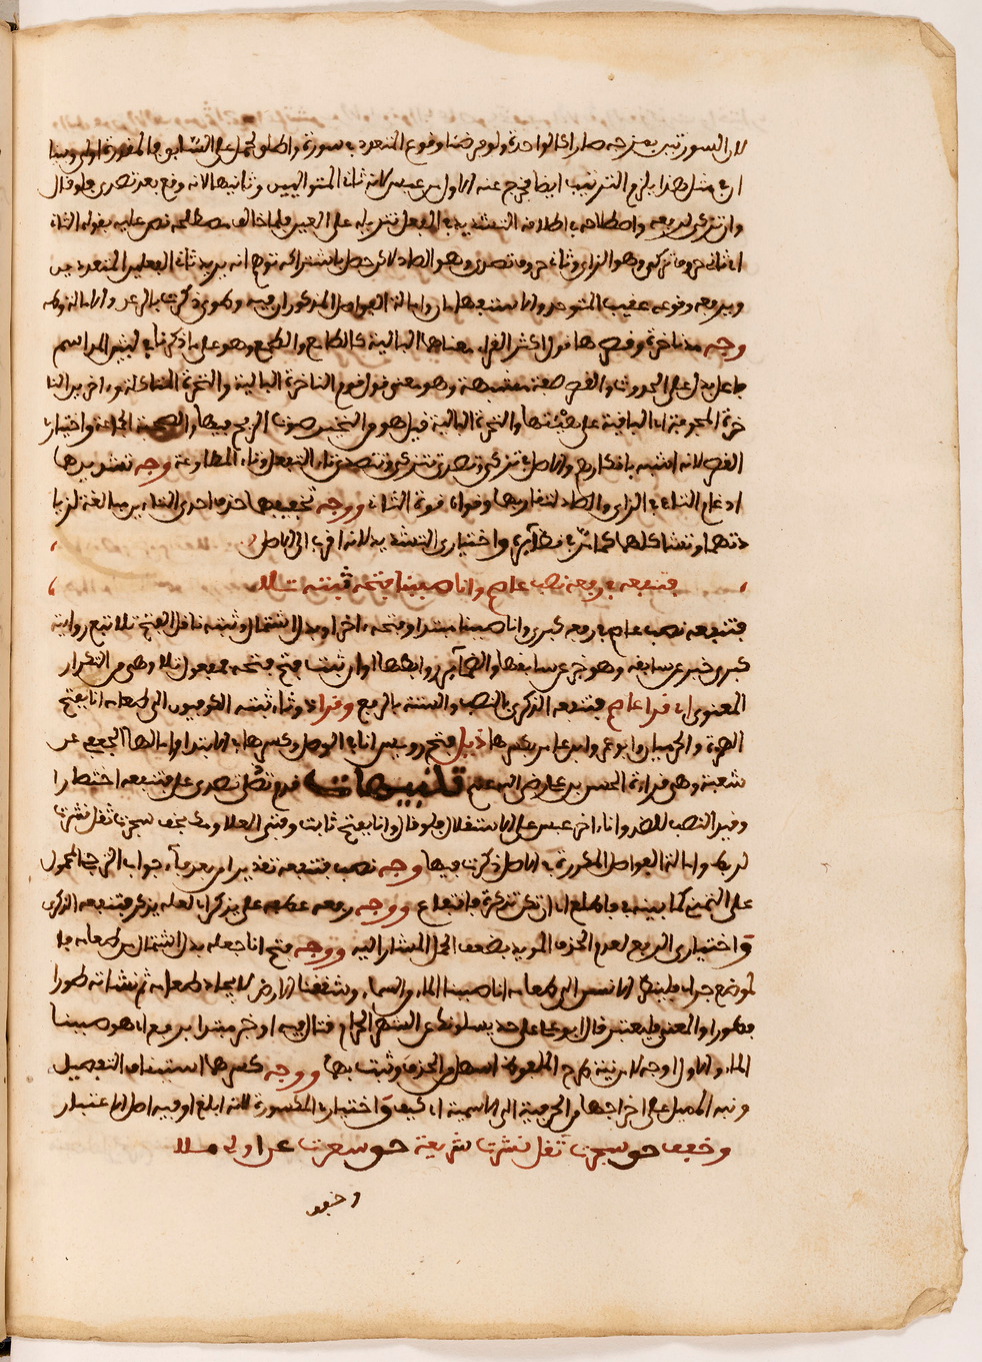 لان السورتين بعدجه صارا كالواحدة ولو فرضنا وقوع المتعدد سورة واطلق لحمل على السابق فالمقيدة اولى وبينا
ان مثل هذا يلزم الترتيب ايضا فيخرج عنه الاول من عبس لانه ثاني المتواليين وثانيها لانه وقع بعد تصدى فلو قال
وان تزكى لرفعه واصطلاحه اطلاقه التشديد في الفعل تنزيله على العين فلما خالف مصطلحه نص عليه بقوله الثان
اي ثاني حروف تزكى وهو الزاي وثاني حروف تصدى وهو الصاد لكن حصل باشتراكه توهم انه يريد ثاني الفعلين المتعددين
ويدفعه وقوعه عقيب المتوحد
وجه مد ناخرة وقصرها قول اكثر الفراء معناهما البالية كالطامع والطمع وهو على ما ذكرنا
فاعل يدل على الحدوث والقصر صفة مشبهة وهو معنى قول قوم الناخرة البالية والنخرة المتاكلة
خرة المجوفة اي الباقية على هيئتها والنخرة البالية قيل هو من النخير صوت الريح فيها واختياري
القصر لانه اشبه بافكارهم والاصل في تزكى وتصدى تتزكى وتتصدى تاء التفعل وتاء المطاوعة وجه تشديدها
ادغام التاء في الزاي والصاد لتقاربها وقواه قوة الثاني ووجه تخفيفها حذف احدى التاءين مبالغة لزيا
دتهما وتشاكلهما كما مر في نظائره واختياري التشديد لانه اقرب الى الاصل
فتنفعه في رفعه نصب عاصم وانا صببنا فتحه ثبته تلا
فتنفعه نصب عاصم في رفعه كبرى وانا صببنا مبتدا وفتحه اخر او بدل اشتمال وثبته ناقل الفتح تلا تبع روايته
كبرى خبر عن سابقه وهو خبر عن سابقها والضمائر روابطها او ان ثبت فتح فتحه مفعول تلا وهي من التكرار
المعنوي اي قرا عاصم فتنفعه الذكرى بالنصب والستة بالرفع وقرا ذو ثاء ثبته الكوفيون الى طعامه انا بفتح
الهمزة والحرميان وابو عمرو وابن عامر بكسرها ذيل فتح رويس انا في الوصل وكسرها في الابتدا وامالها الجعفي عن
شعبة وهي قراءة الحسن بن علي رضي الله عنهم تنبيهات قدم تصدى على فتنفعه اضطرارا
وقيد النصب للضد وانا اخر عبس على الاستقلال فلو قال وانا بفتح ثابت وقتى العلا ومك يخف سجرت ثقل نشرت
لربط وامالة الفواصل المذكورة في الاصل ذكرت فيها وجه نصب فتنفعه تقدير ان بعد فاء جواب الترجي المحمول
على التمني كما بينته في فاطلع اي ان تكن تذكرة فانتفاع ووجه رفعه عطفه على يذكر اي لعله يذكر فتنفعه الذكرى
واختياري الرفع لعدم الحذف المويد بضعف الحمل المشار اليه ووجه فتح انا جعله بدل اشتمال من طعامه فلا
موضع جر اي فلينظر الانسان الى طعامه انا صببنا الماء والسماء وشققنا الارض لايجاد طعامه ثم نشاته طورا
فطورا والمعنى فليعتبر قال ابو علي على حد يسلونك عن الشهر الحرام قتال فيه او خبر مبتدا برفع اي هو صببنا
الماء والاول اوجه لقرينة طرح الملفوظ اسهل من الحذف وثبت بها ووجه كسرها استئناف التفصيل
ونبه المميل على اخراجها من الحرفية الى الاسمية اي كيف واختياري المكسورة لانه ابلغ اوفيه اصل الاعتبار
وخفف حق سجرت ثقل نشرت شريعة حق سعرت عن اولى ملا
وخفف